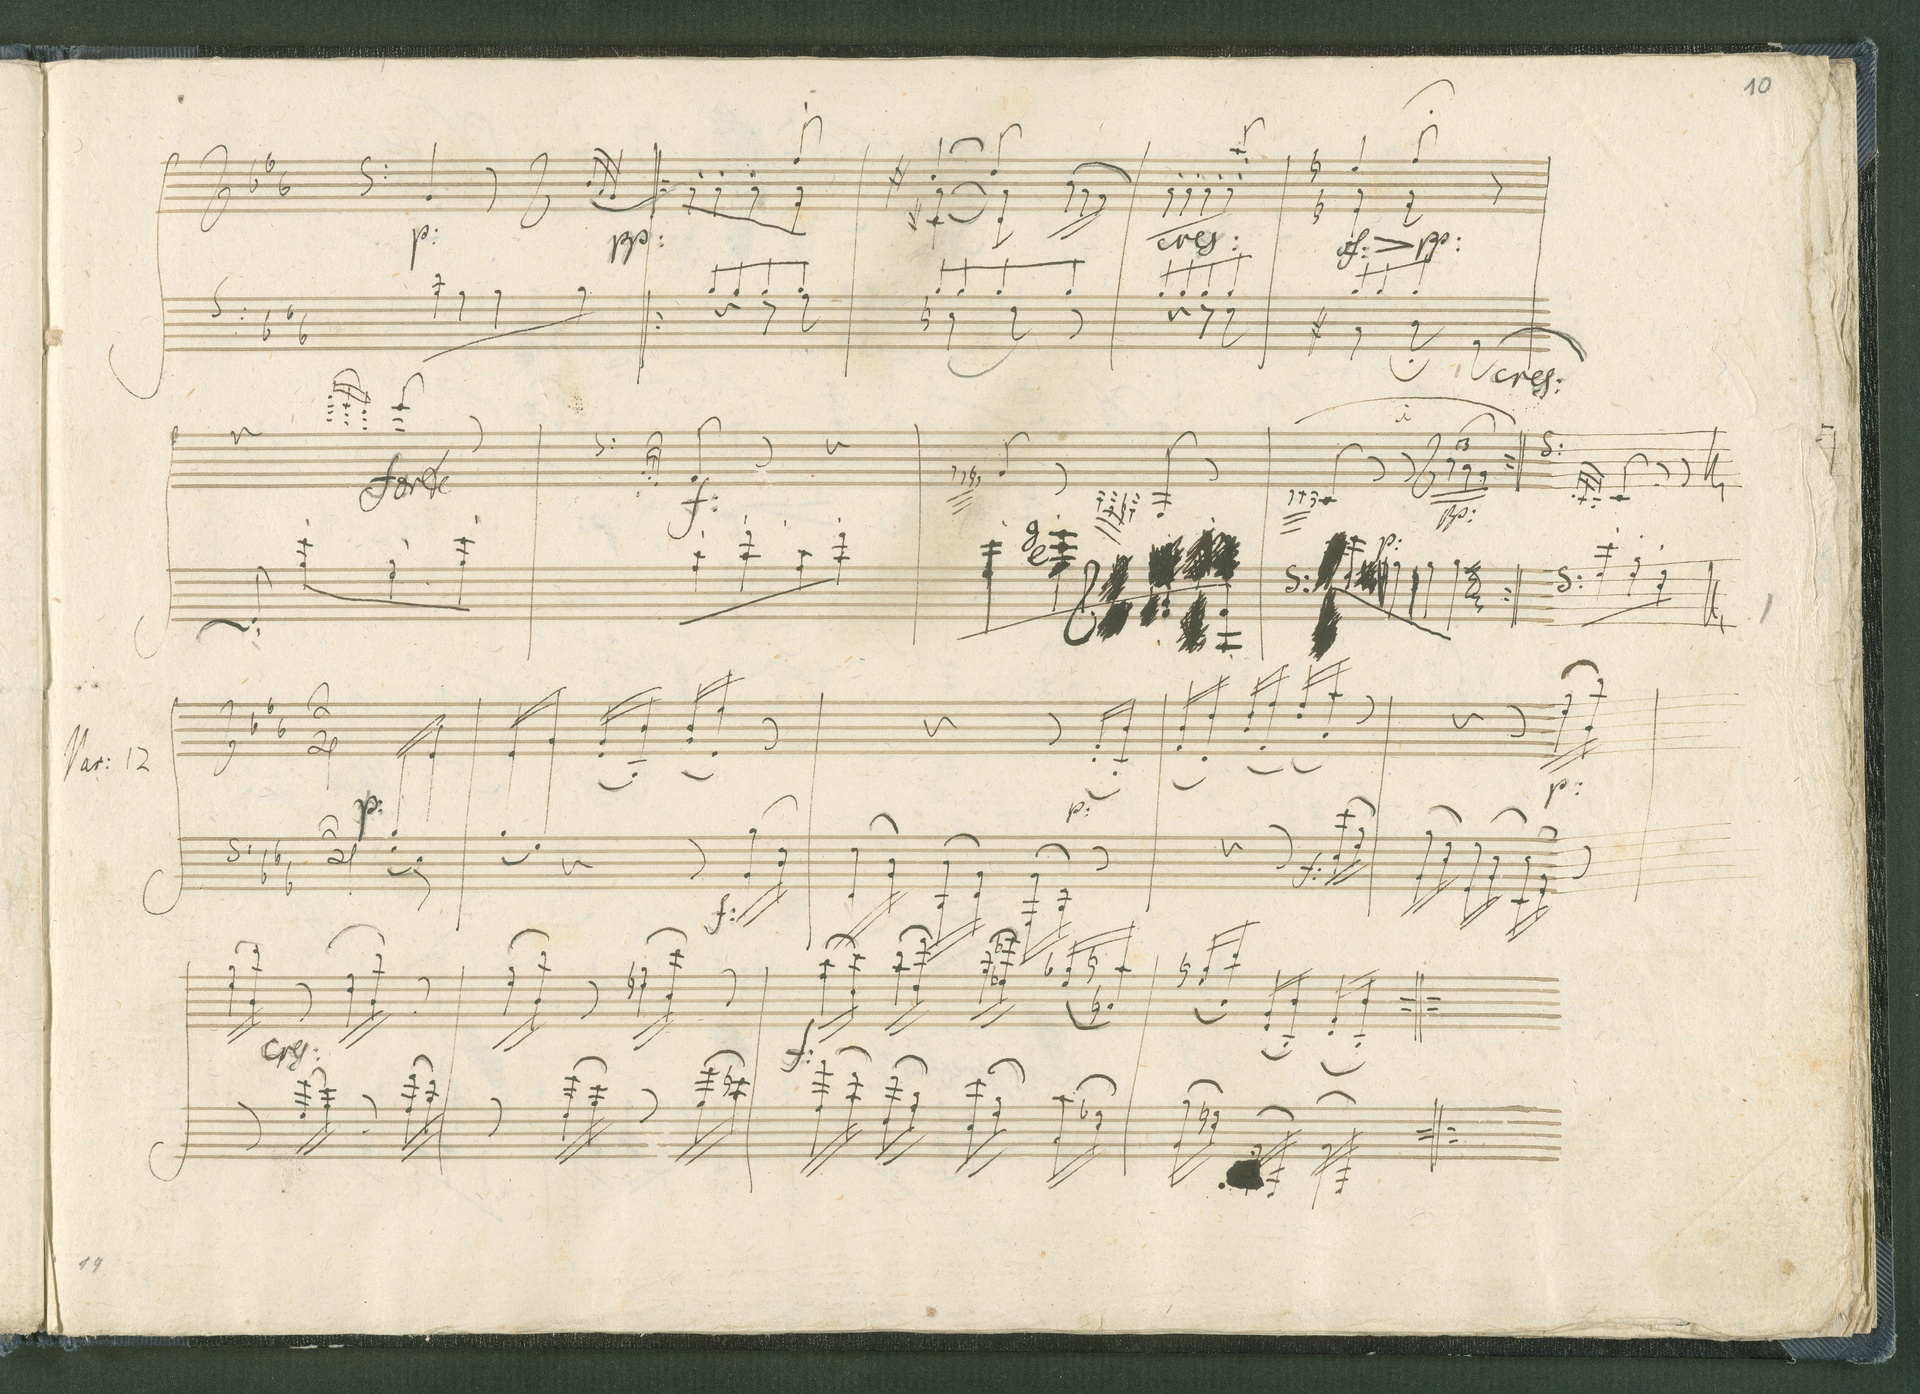 10
p: pp: cres: sf: pp:
cres:
forte f: pp:
g
e p:
Var: 12
p: p: p:
f: f:
cres: f:
19